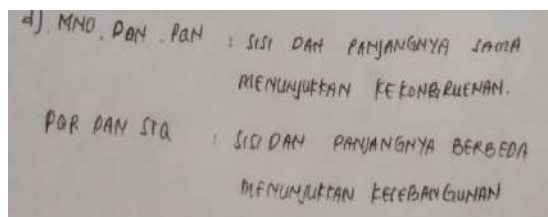 d). MNO. DAN. PQN : SISI DAN PANJANGNYA SAMA
MENUNJUKKAN KEKONGRUENAN.
PQR DAN STQ : SISI DAN PANJANGNYA BERBEDA
MENUNJUKKAN KESEBANGUNAN